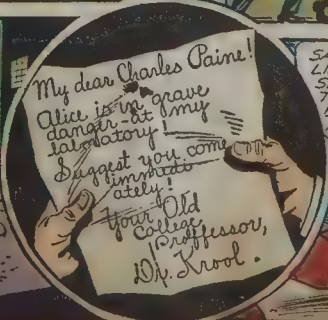 My dear Charles Paine!
Alice is in grave
danger-at my
laboratory!
Suggest you come
immedi
ately!
Your Old
College
Proffessor,
Dr. Krool.